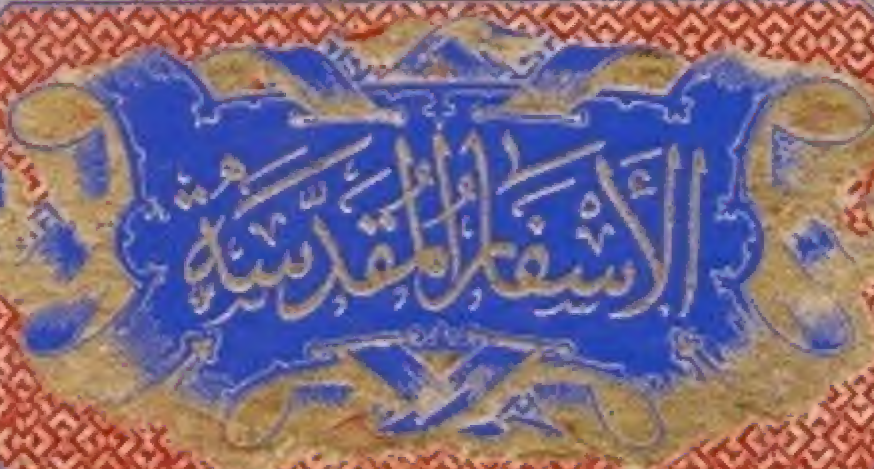 الأسفار المقدسة